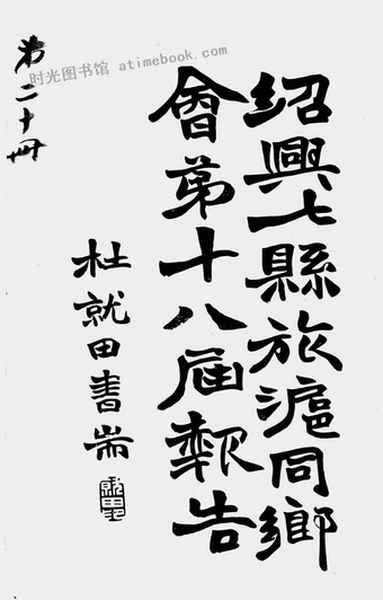 绍興七縣旅滬同鄉
會第十八届報告
杜就田書耑
第二十冊
时光图书馆 atimebook.com